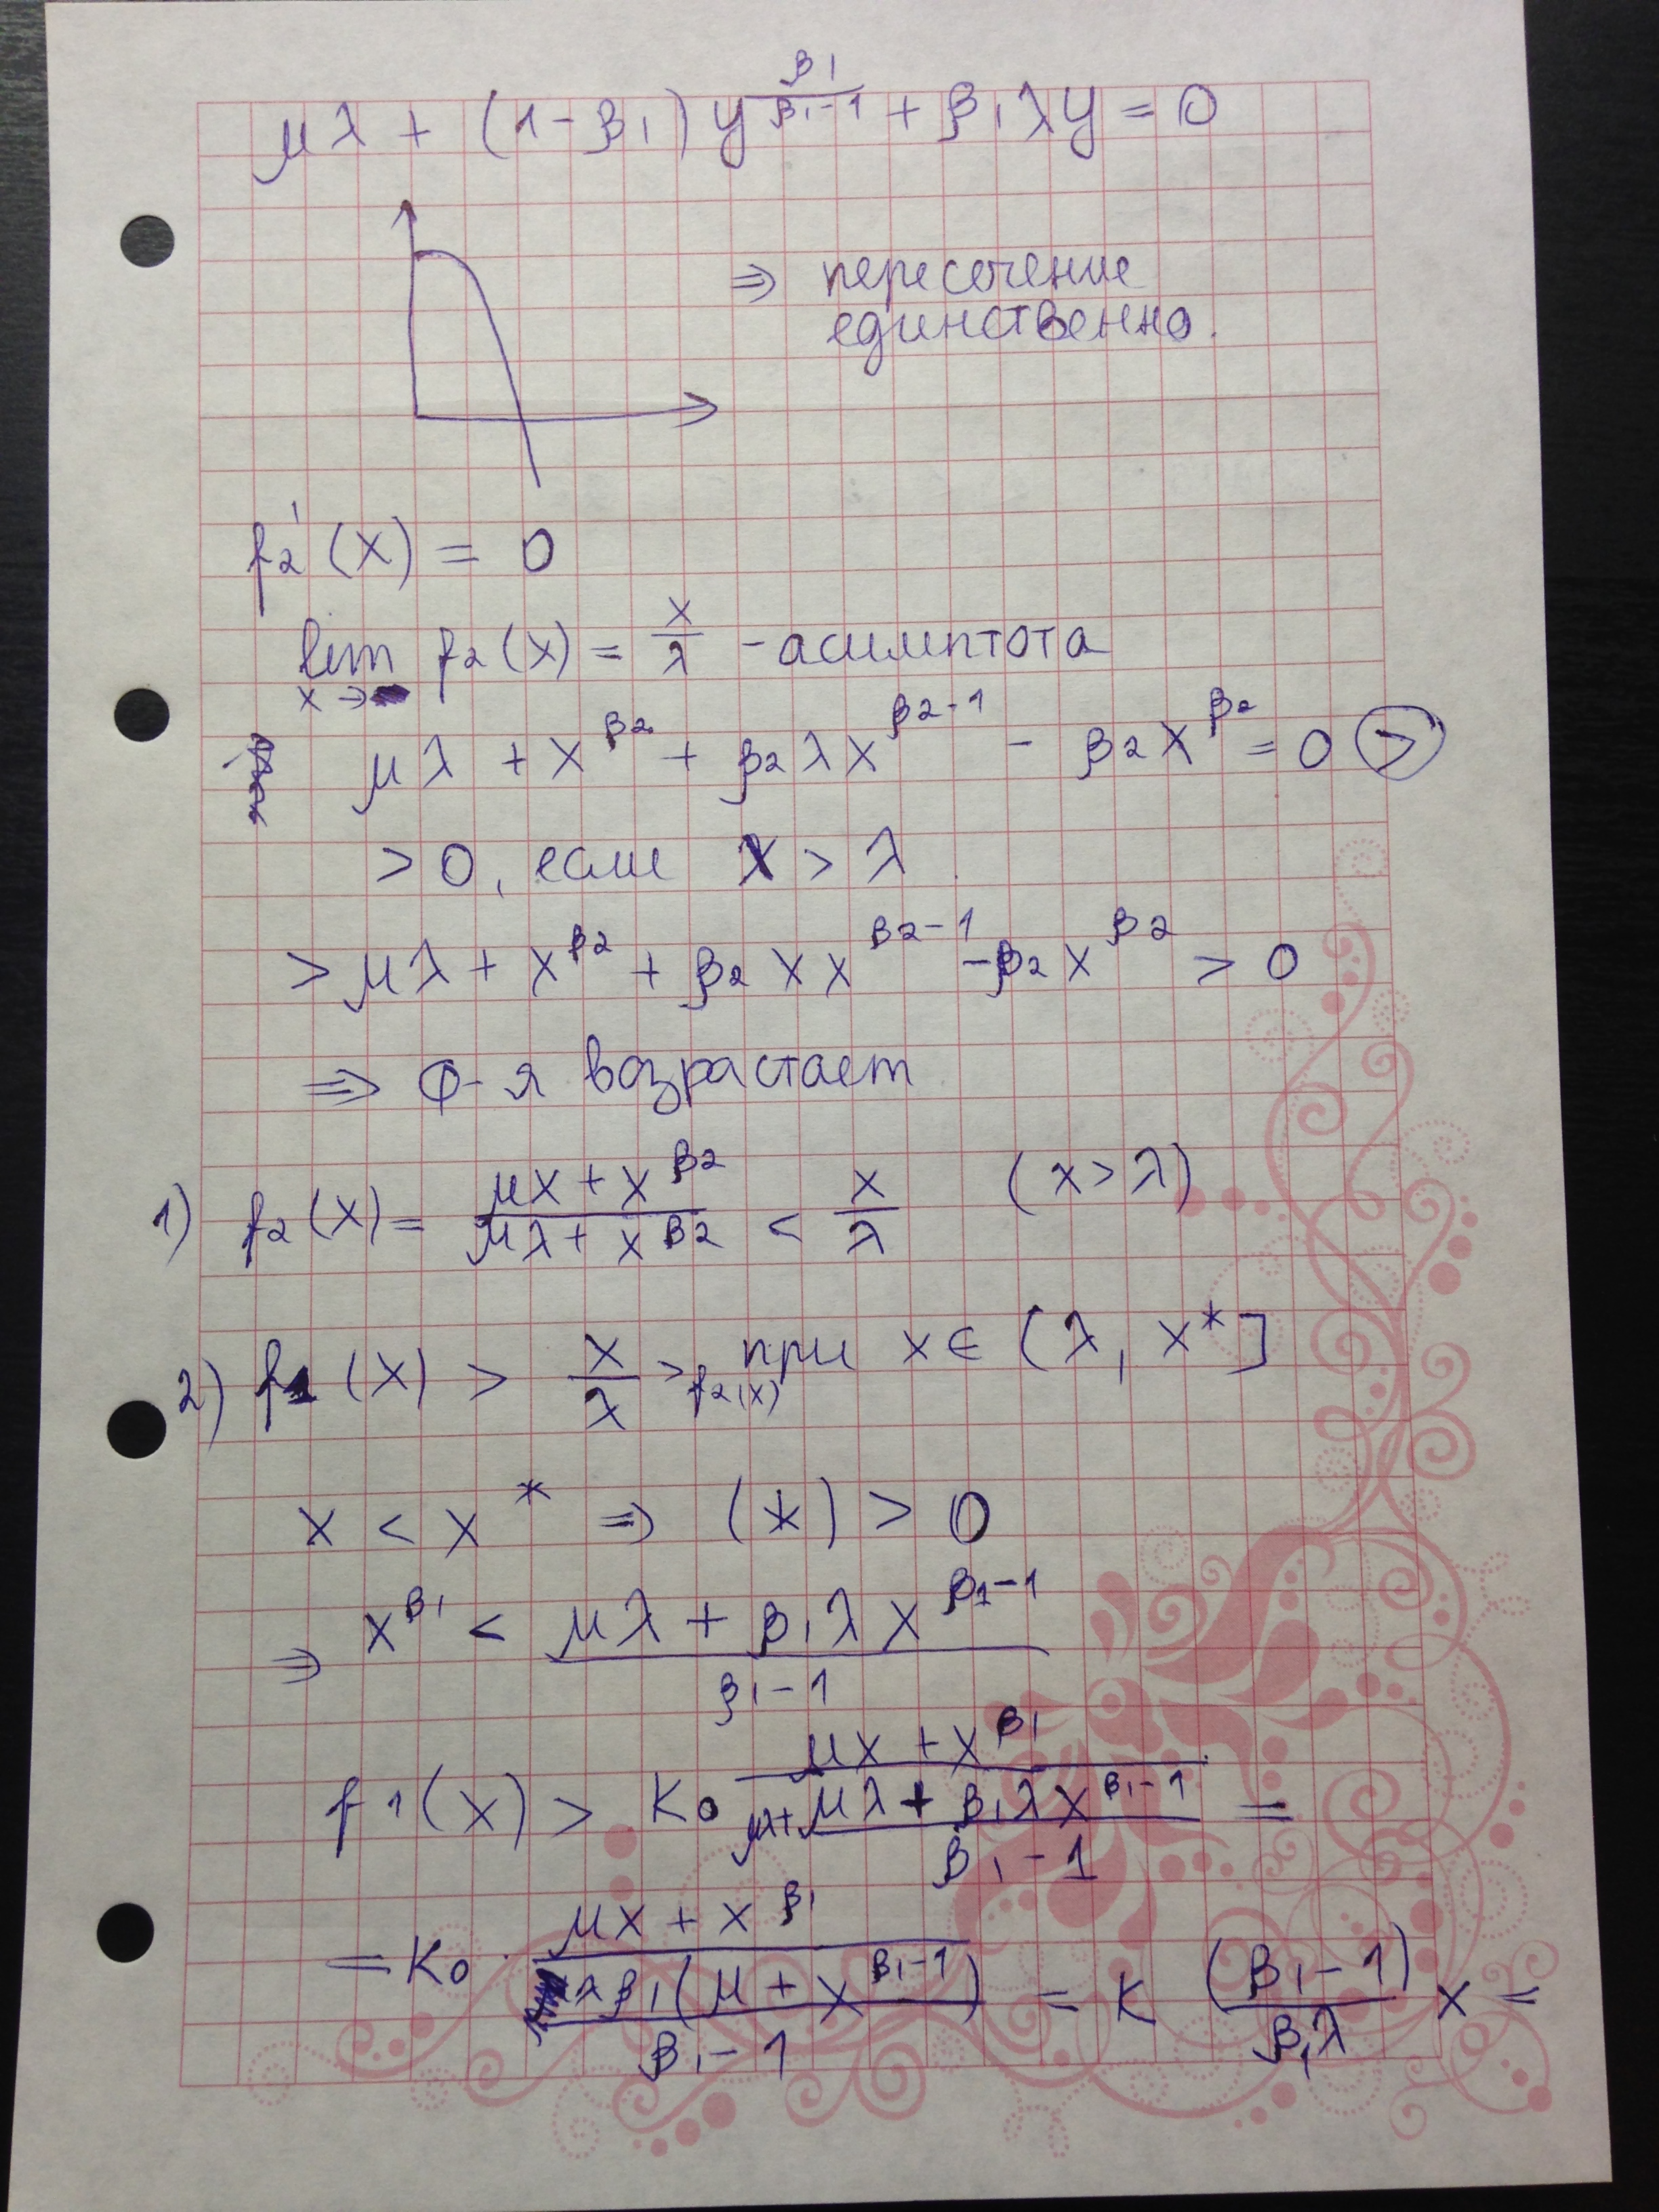 μλ + (1-β₁) y^(β₁/(β₁-1)) + β₁λy = 0
⇒ пересечение
единственно.
f₂'(x) = 0
lim x→ f₂(x) = x/λ - асимптота
μλ + x^β₂ + β₂λx^(β₂-1) - β₂x^β₂ = 0 >
> 0, если x > λ
> μλ + x^β₂ + β₂xx^(β₂-1) - β₂x^β₂ > 0
⇒ ф-я возрастает
1) f₂(x) = (μx + x^β₂)/(μλ + x^β₂) < x/λ (x > λ)
2) f₁(x) > x/λ > f₂(x) при x ∈ (λ, x*]
x < x* ⇒ (*) > 0
⇒ x^β₁ < (μλ + β₁λx^(β₁-1))/(β₁-1)
f₁(x) > K₀ (μx + x^β₁)/(μλ + (μλ + β₁λx^(β₁-1))/(β₁-1)) =
= K₀ · (μx + x^β₁)/(λβ₁(μ + x^(β₁-1))/(β₁-1)) = K (β₁-1)/(β₁λ) x =